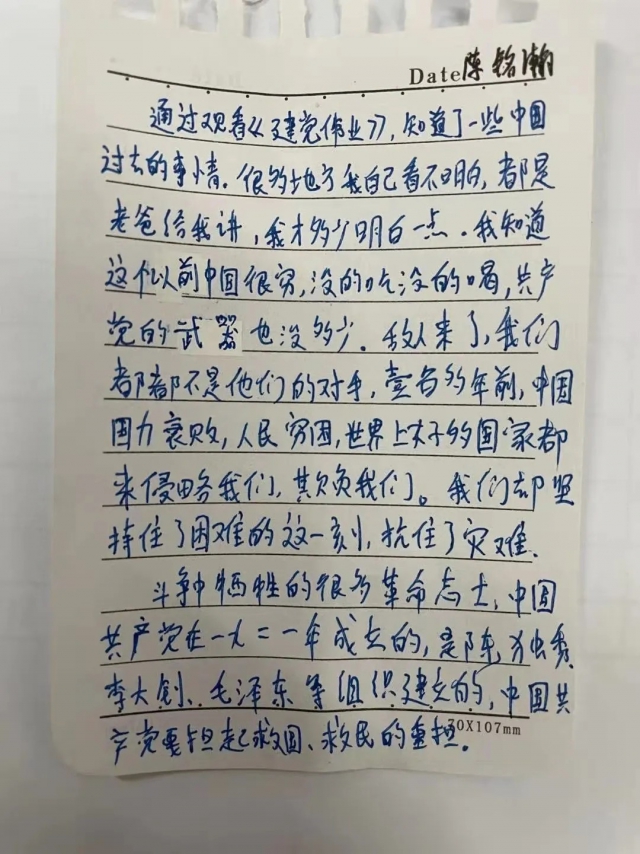 Date陈铭瀚
通过观看《建党伟业》,知道了一些中国
过去的事情.很多地方我自己看不明白,都是
老爸给我讲,我才多少明白一点.我知道
这个以前中国很穷,没的吃没的喝,共产
党的武器也没多少.敌人来了,我们
都都不是他们的对手,壹百多年前,中国
国力衰败,人民穷困,世界上好多国家都
来侵略我们,欺负我们。我们却坚
持住了困难的这一刻,抗住了灾难.
斗争中牺牲的很多革命志士,中国
共产党在一九二一年成立的,是陈独秀,
李大钊、毛泽东等组织建立的,中国共
产党要担起救国、救民的重担.
70X107mm